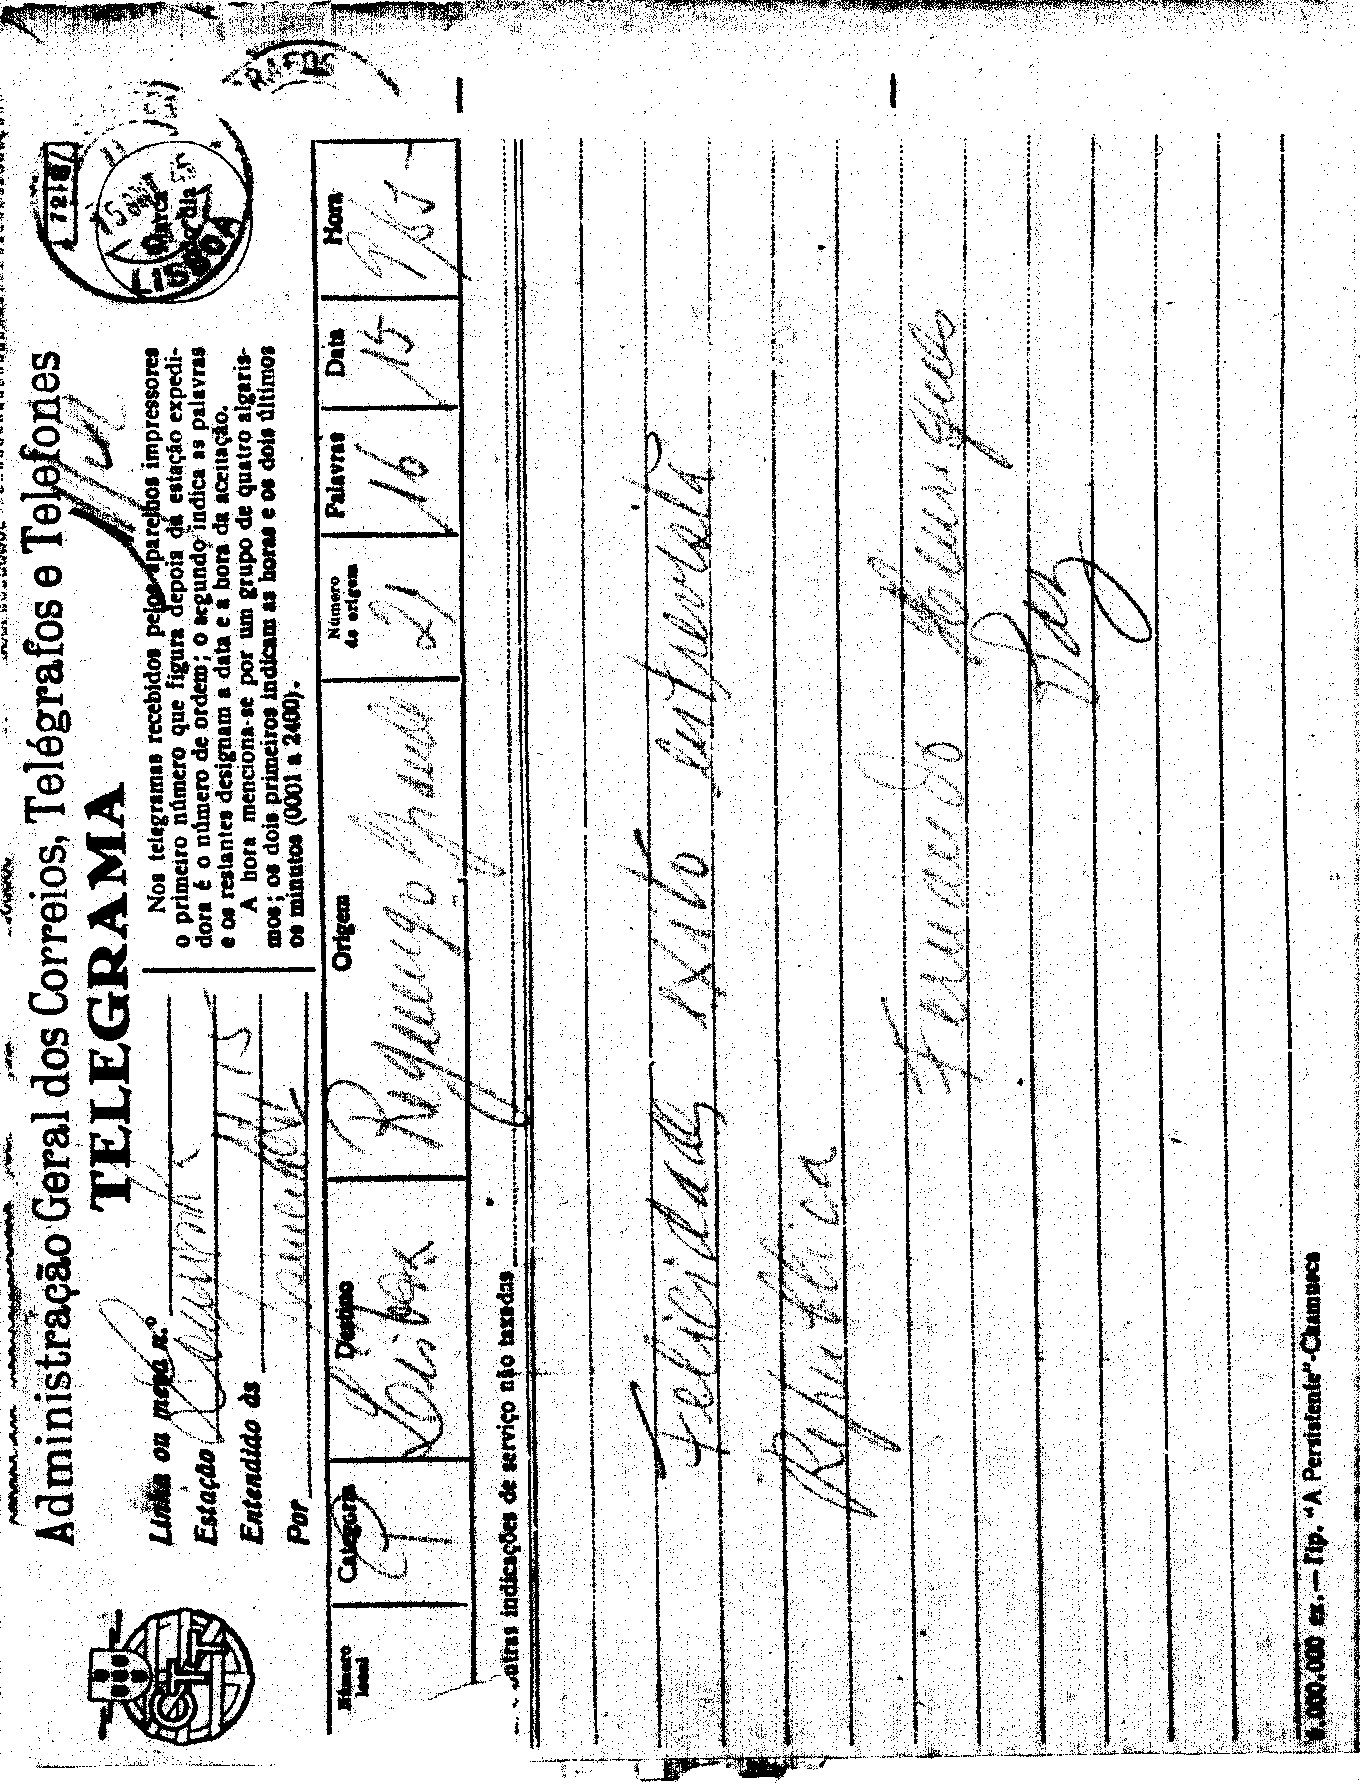 Administração Geral dos Correios, Telégrafos e Telefones
TELEGRAMA
CTT
Linha ou mesa n.º
Estação
Entendido às
Por
Nos telegramas recebidos pelos aparelhos impressores
o primeiro número que figura depois da estação expedi-
dora é o número de ordem; o segundo indica as palavras
e os restantes designam a data e a hora da aceitação.
A hora menciona-se por um grupo de quatro algaris-
mos; os dois primeiros indicam as horas e os dois últimos
os minutos (0001 a 2400).
LISBOA
Número local
Categoria
Destino
Origem
Número de origem
Palavras
Data
Hora
Lisboa
21
16
15
outras indicações de serviço não taxadas
Felicidade exito entrevista
Republica
Fernando Henriques
8.000.000 ex. — Tip. "A Persistente"-Chamusca